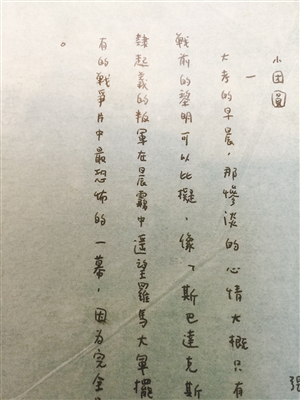 小团圓
一
大考的早晨，那慘淡的心情大概只有
戰前的黎明可以比擬，像「斯巴達克斯
隸起義的叛軍在晨霧中遥望羅馬大軍擺
有的戰爭片中最恐怖的一幕，因为完全
。